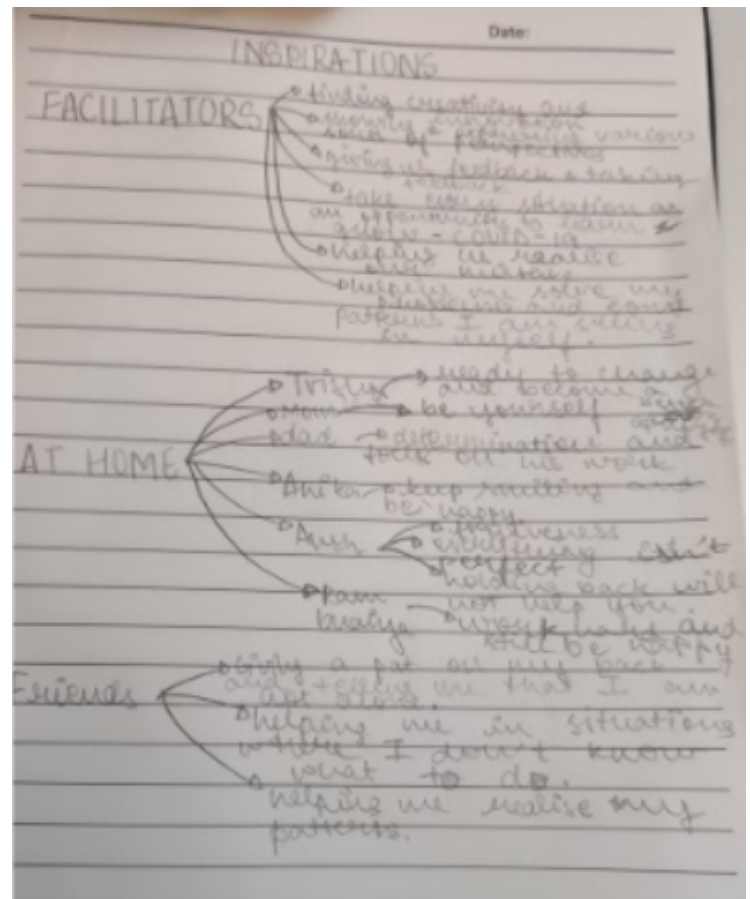 Date:
INSPIRATIONS
FACILITATORS
finding creativity and
showing innovation
various
perspectives
giving us feedback & taking
feedback
take every situation as
an opportunity to learn &
- COVID-19
helping us realise
our mistake
helping me solve my
problems and
patterns I am seeing
in myself.
AT HOME
ready to change
and become a
Mom be yourself
dad determination and
focus on his work
Anika keep smiling and
be happy
Ansh forgiveness
everything isn't
perfect
holding back will
not help you
Ram
bhaiya work hard and
still be happy
Friends
Giving a pat on my back
and telling me that I am
not alone.
helping me in situations
where I don't know
what to do.
helping me realise my
patterns.